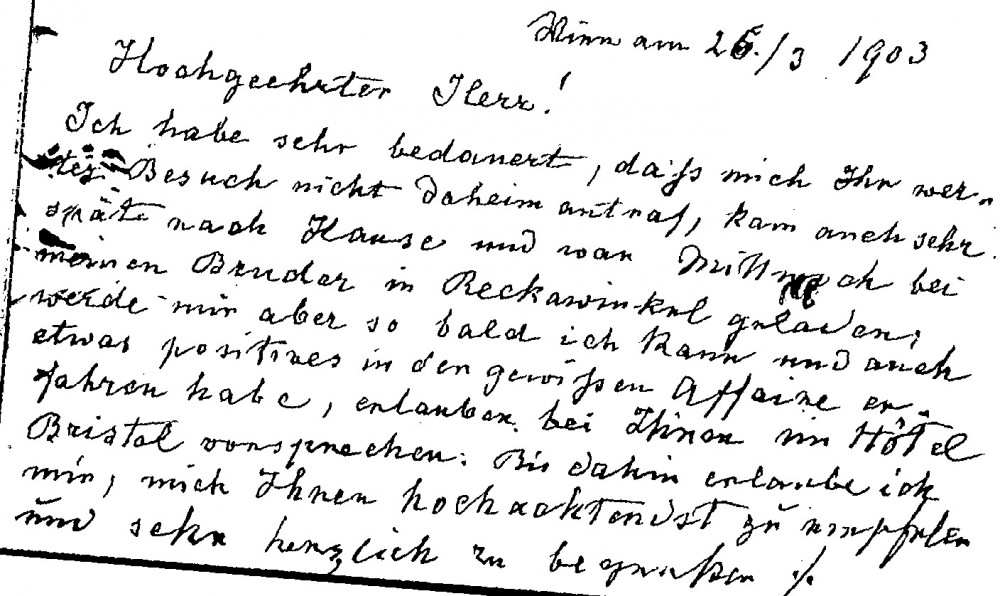 Wien am 26./3 1903
Hochgeehrter Herr!
Ich habe sehr bedauert, daſs mich Ihr wer-
ter Besuch nicht daheim antraf, kam auch sehr
spät nach Hause und war Mittwoch bei
meinen Bruder in Reckawinkel geladen;
werde mir aber so bald ich kann und auch
etwas positives in der gewiſsen Affaire er-
fahren habe, erlauben bei Ihnen im Hôtel
Bristol vorsprechen. Bis dahin erlaube ich
mir, mich Ihnen hochachtendst zu empfelen
und sehr herzlich zu begrüßen ./.